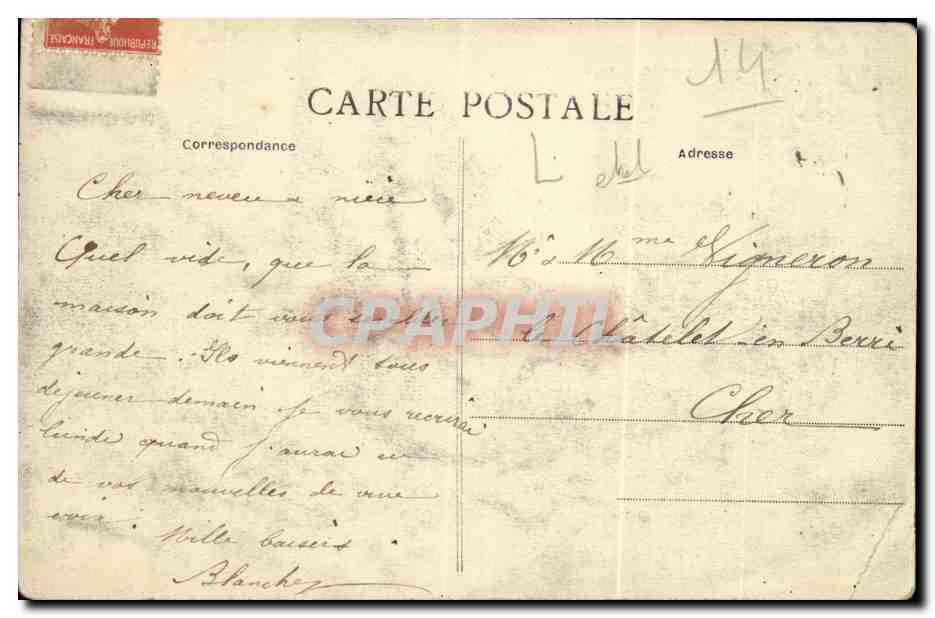 RÉPUBLIQUE FRANÇAISE
14
CARTE POSTALE
Correspondance
Adresse
L
Cher neveu & nièce
Quel vide, que la
maison doit vous sembler
grande. Ils viennent tous
dejeuner demain je vous recrirai
lundi quand j'aurai eu
de vos nouvelles de vive
voix.
Mille baisers
Blanche
Mr & Mme Vigneron
le Châtelet en Berri
Cher
CPAPHIL